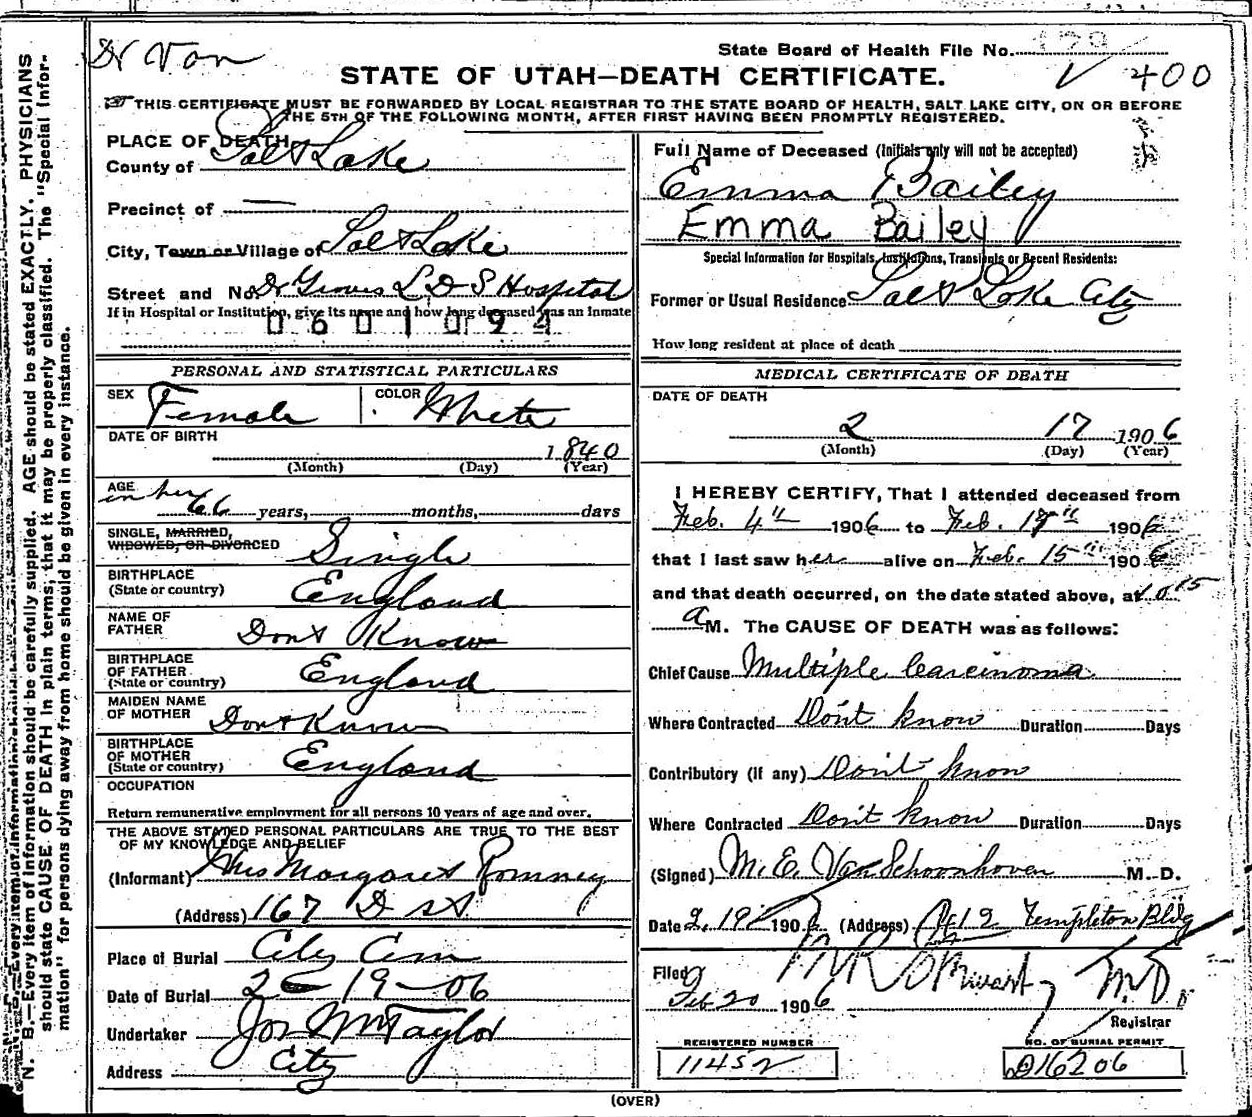 Dr Van
State Board of Health File No.
V 400
STATE OF UTAH—DEATH CERTIFICATE.
THIS CERTIFICATE MUST BE FORWARDED BY LOCAL REGISTRAR TO THE STATE BOARD OF HEALTH, SALT LAKE CITY, ON OR BEFORE
THE 5TH OF THE FOLLOWING MONTH, AFTER FIRST HAVING BEEN PROMPTLY REGISTERED.
N. B.—Every item of information should be carefully supplied. AGE should be stated EXACTLY. PHYSICIANS
should state CAUSE OF DEATH in plain terms, that it may be properly classified. The "Special Infor-
mation" for persons dying away from home should be given in every instance.
PLACE OF DEATH
County of Salt Lake
Precinct of —
City, Town or Village of Salt Lake
Street and No. Dr Groves L D S Hospital
If in Hospital or Institution, give its name and how long deceased was an inmate
0601094
PERSONAL AND STATISTICAL PARTICULARS
SEX Female COLOR White
DATE OF BIRTH
1840
(Month) (Day) (Year)
AGE
in her 66 years, months, days
SINGLE, MARRIED,
WIDOWED, OR DIVORCED Single
BIRTHPLACE
(State or country) England
NAME OF
FATHER Dont Know
BIRTHPLACE
OF FATHER
(State or country) England
MAIDEN NAME
OF MOTHER Dont Know
BIRTHPLACE
OF MOTHER
(State or country) England
OCCUPATION
Return remunerative employment for all persons 10 years of age and over.
THE ABOVE STATED PERSONAL PARTICULARS ARE TRUE TO THE BEST
OF MY KNOWLEDGE AND BELIEF
(Informant) Mrs Margaret Romney
(Address) 167 D St
Place of Burial City Cem
Date of Burial 2 - 19 - 06
Undertaker Jos Wm Taylor
Address City
Full Name of Deceased (Initials only will not be accepted)
Emma Bailey
Emma Bailey
Special Information for Hospitals, Institutions, Transients or Recent Residents:
Former or Usual Residence Salt Lake City
How long resident at place of death
MEDICAL CERTIFICATE OF DEATH
DATE OF DEATH
2 17 1906
(Month) (Day) (Year)
I HEREBY CERTIFY, That I attended deceased from
Feb. 4th 1906 to Feb. 17th 1906
that I last saw her alive on Feb. 15th 1906
and that death occurred, on the date stated above, at 10.15
a M. The CAUSE OF DEATH was as follows:
Chief Cause Multiple Carcinoma
Where Contracted Don't know Duration Days
Contributory (if any) Don't know
Where Contracted Don't know Duration Days
(Signed) M. E. Van Schoonhoven M. D.
Date 2, 19 1906 (Address) 412 Templeton Bldg
Filed
Feb 20 1906 M R Stewart, M.D.
Registrar
REGISTERED NUMBER
11452
NO. OF BURIAL PERMIT
D16206
(OVER)